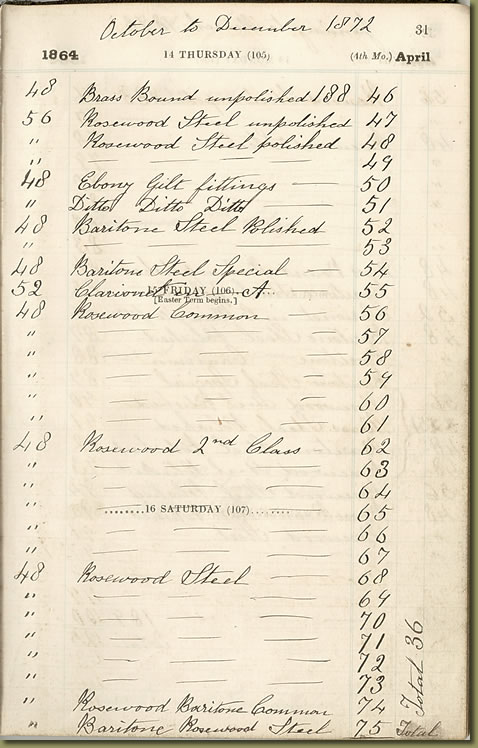 October to December 1872
31
1864 14 THURSDAY (105) (4th Mo.) April
48 Brass Bound unpolished 188 46
56 Rosewood Steel unpolished 47
" Rosewood Steel polished 48
" — — — 49
48 Ebony Gilt fittings — 50
Ditto Ditto Ditto — 51
48 Baritone Steel Polished 52
" — — 53
48 Baritone Steel Special — 54
52 Clarionet A 55
15 FRIDAY (106)
[Easter Term begins.]
48 Rosewood Common — 56
" — — — 57
" — — — 58
" — — — 59
" — — — 60
" — — — 61
48 Rosewood 2nd Class 62
" — — — 63
" — — — 64
" ........16 SATURDAY (107)........ 65
" — — — 66
" — — — 67
48 Rosewood Steel — 68
" — — — 69
" — — — 70
" — — — 71
" — — — 72
" — — — 73
" Rosewood Baritone Common 74
" Baritone Rosewood Steel 75
Total 36
Total